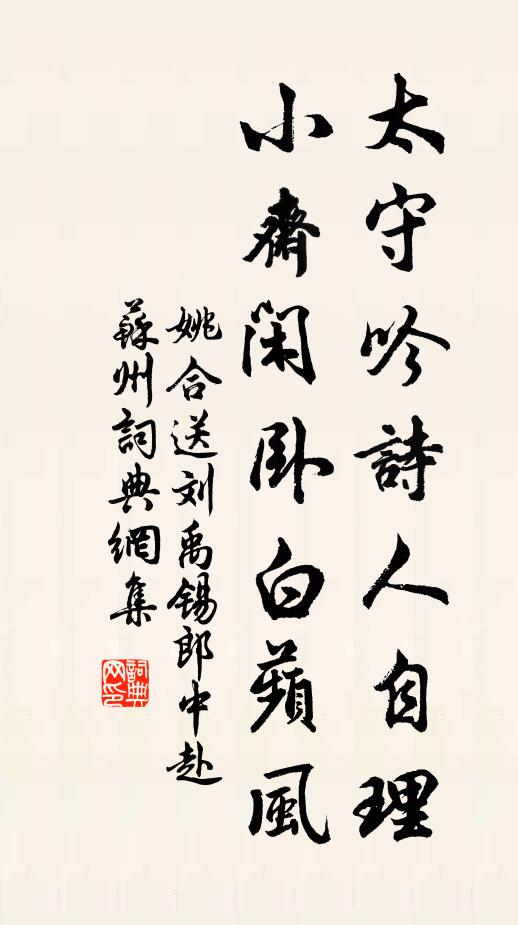 太守吟詩人自理
小齋閑臥白蘋風
姚合送刘禹锡郎中赴
蘇州詞典網集
詞典
网印